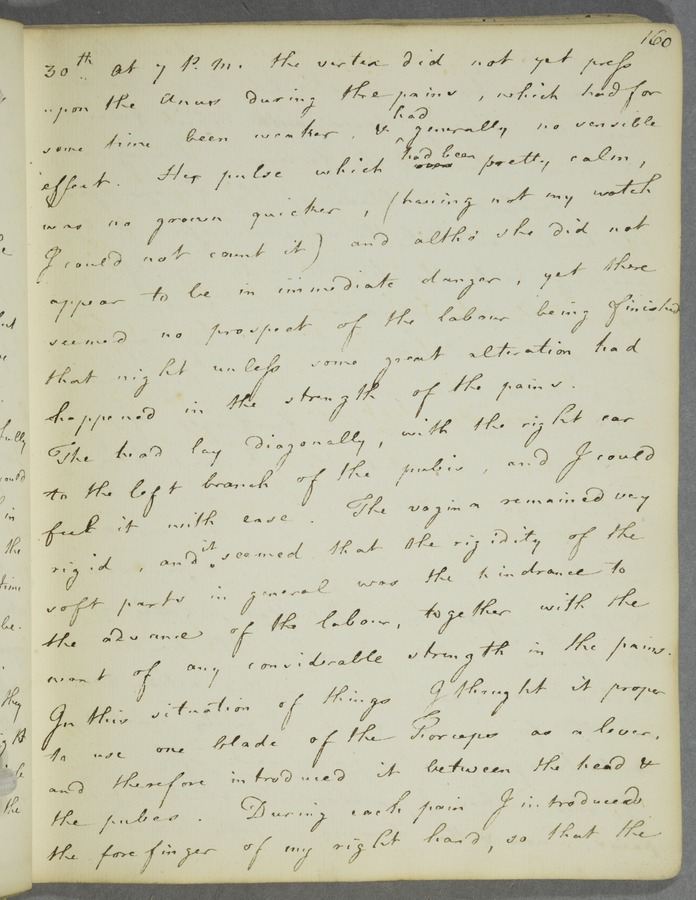 160
30th at 7 P. M. the vertex did not yet press
upon the Anus during the pains, which had for
some time been weaker, & had generally no sensible
effect. Her pulse which had been pretty calm,
was no grown quicker, (having not my watch
I could not count it) and altho' she did not
appear to be in immediate danger, yet there
seemed no prospect of the labour being finished
that night unless some great alteration had
happened in the strength of the pains.
The head lay diagonally, with the right ear
to the left branch of the pubis, and I could
feel it with ease. The vagina remained very
rigid, and it seemed that the rigidity of the
soft parts in general was the hindrance to
the advance of the labour, together with the
want of any considerable strength in the pains.
In this situation of things I thought it proper
to use one blade of the Forceps as a lever,
and therefore introduced it between the head &
the pubes. During each pain I introduced
the fore finger of my right hand, so that the